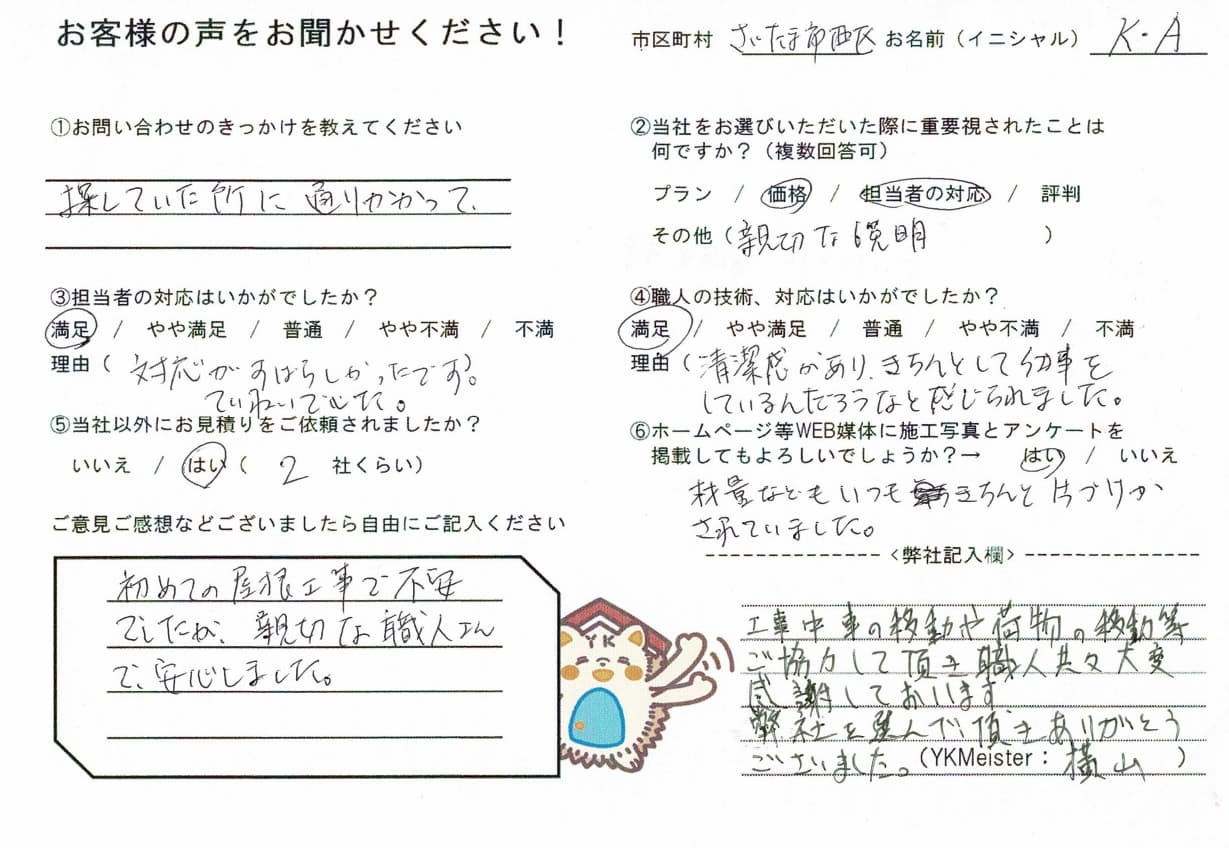 お客様の声をお聞かせください！
市区町村 さいたま市西区 お名前（イニシャル） K・A
①お問い合わせのきっかけを教えてください
探していた所に通りかかって、
②当社をお選びいただいた際に重要視されたことは
何ですか？（複数回答可）
プラン / 価格 / 担当者の対応 / 評判
その他（親切な説明 ）
③担当者の対応はいかがでしたか？
満足 / やや満足 / 普通 / やや不満 / 不満
理由（ 対応がすばらしかったです）。
ていねいでした。
④職人の技術、対応はいかがでしたか？
満足 / やや満足 / 普通 / やや不満 / 不満
理由（清潔感があり、きちんとして仕事を
しているんだろうなと感じられました。
⑤当社以外にお見積りをご依頼されましたか？
いいえ / はい（ 2 社くらい）
⑥ホームページ等WEB媒体に施工写真とアンケートを
掲載してもよろしいでしょうか？→ はい / いいえ
材量などもいつもきちんと片づけが
されていました。
ご意見ご感想などございましたら自由にご記入ください
初めての屋根工事で不安
でしたが、親切な職人さん
で、安心しました。
YK
<弊社記入欄>
工事中車の移動や荷物の移動等
ご協力して頂き職人共々大変
感謝しております
弊社を選んで頂きありがとう
ございました。（YKMeister：横山 ）